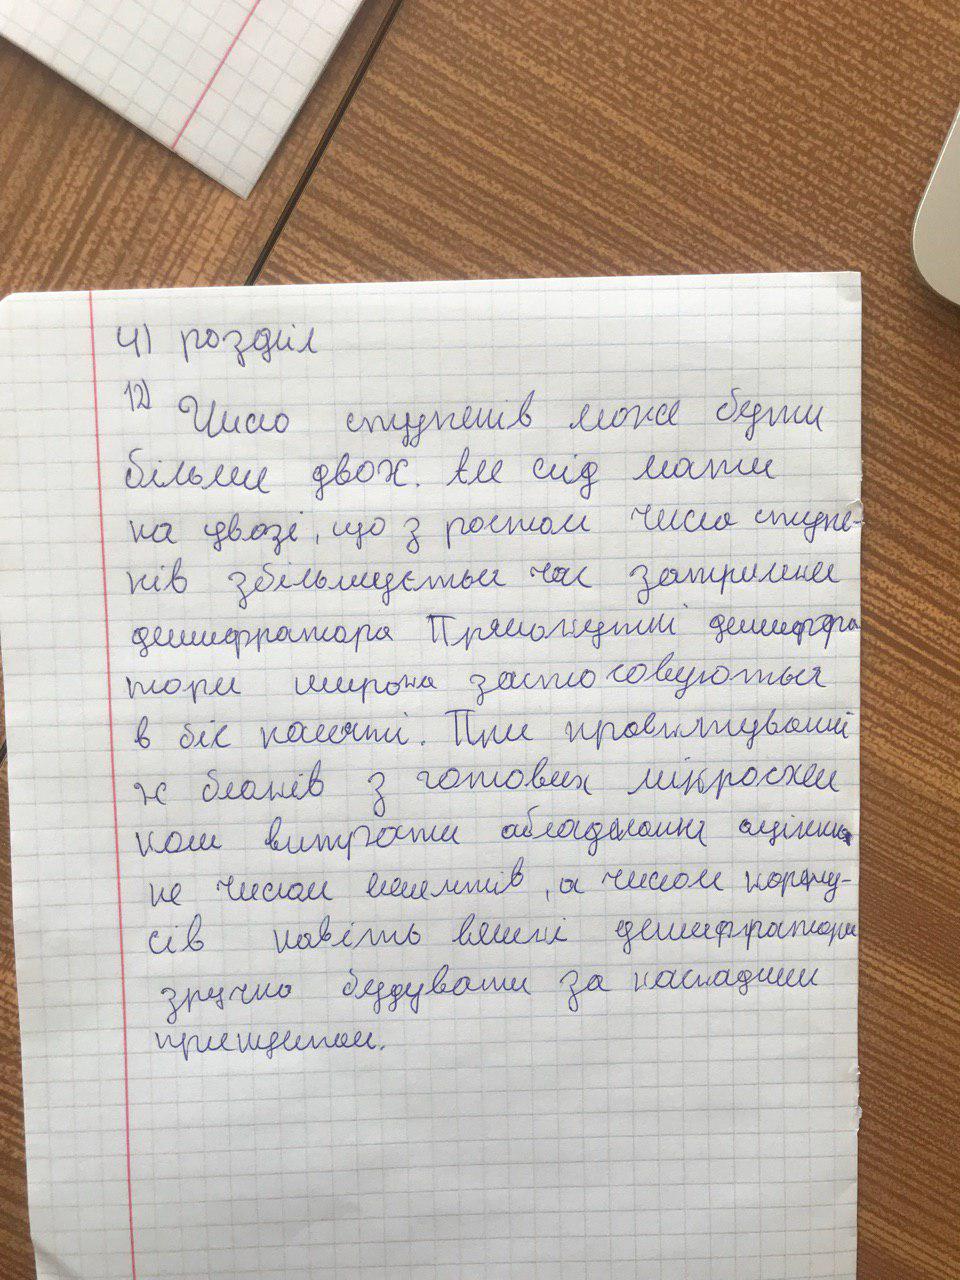 4) розділ
12) Число ступенів може бути
більше двох. Але слід мати
на увазі, що з ростом числа ступе-
нів збільшується час затримки
дешифратора Прямокутні дешифра
тори широко застосовуються
в біс пам'яті. При проектуванні
ж блоків з готових мікросхем
коли витрати обладнання оцінка
не числом елементів, а числом корпу-
сів навіть великі дешифратори
зручно будувати за каскадним
принципом.